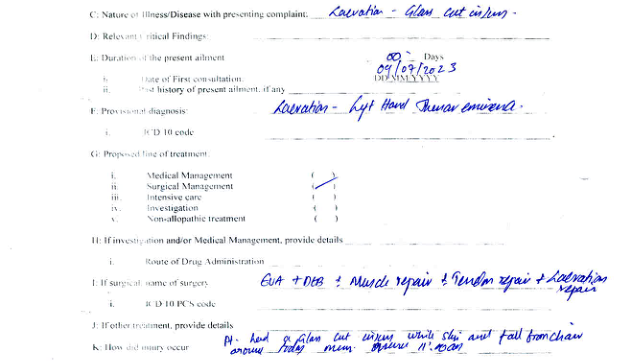 C: Nature of Illness/Disease with presenting complaint: Laceration - Glass cut injury.
D: Relevant Critical Findings:
E: Duration of the present ailment 00 Days
i. Date of First consultation: 09/07/2023
DD/MM/YYYY
ii. Past history of present ailment, if any
F: Provisional diagnosis: Laceration - Left Hand Thenar eminence.
i. ICD 10 code
G: Proposed line of treatment:
i. Medical Management ( )
ii. Surgical Management ( / )
iii. Intensive care ( )
iv. Investigation ( )
v. Non-allopathic treatment ( )
H: If investigation and/or Medical Management, provide details
i. Route of Drug Administration
I: If surgical, name of surgery EUA + DEB ± Muscle repair ± Tendon repair + Laceration repair
i. ICD 10 PCS code
J: If other treatment, provide details
K: How did injury occur Pt. had a Glass cut injury while slip and fall from chair
around today